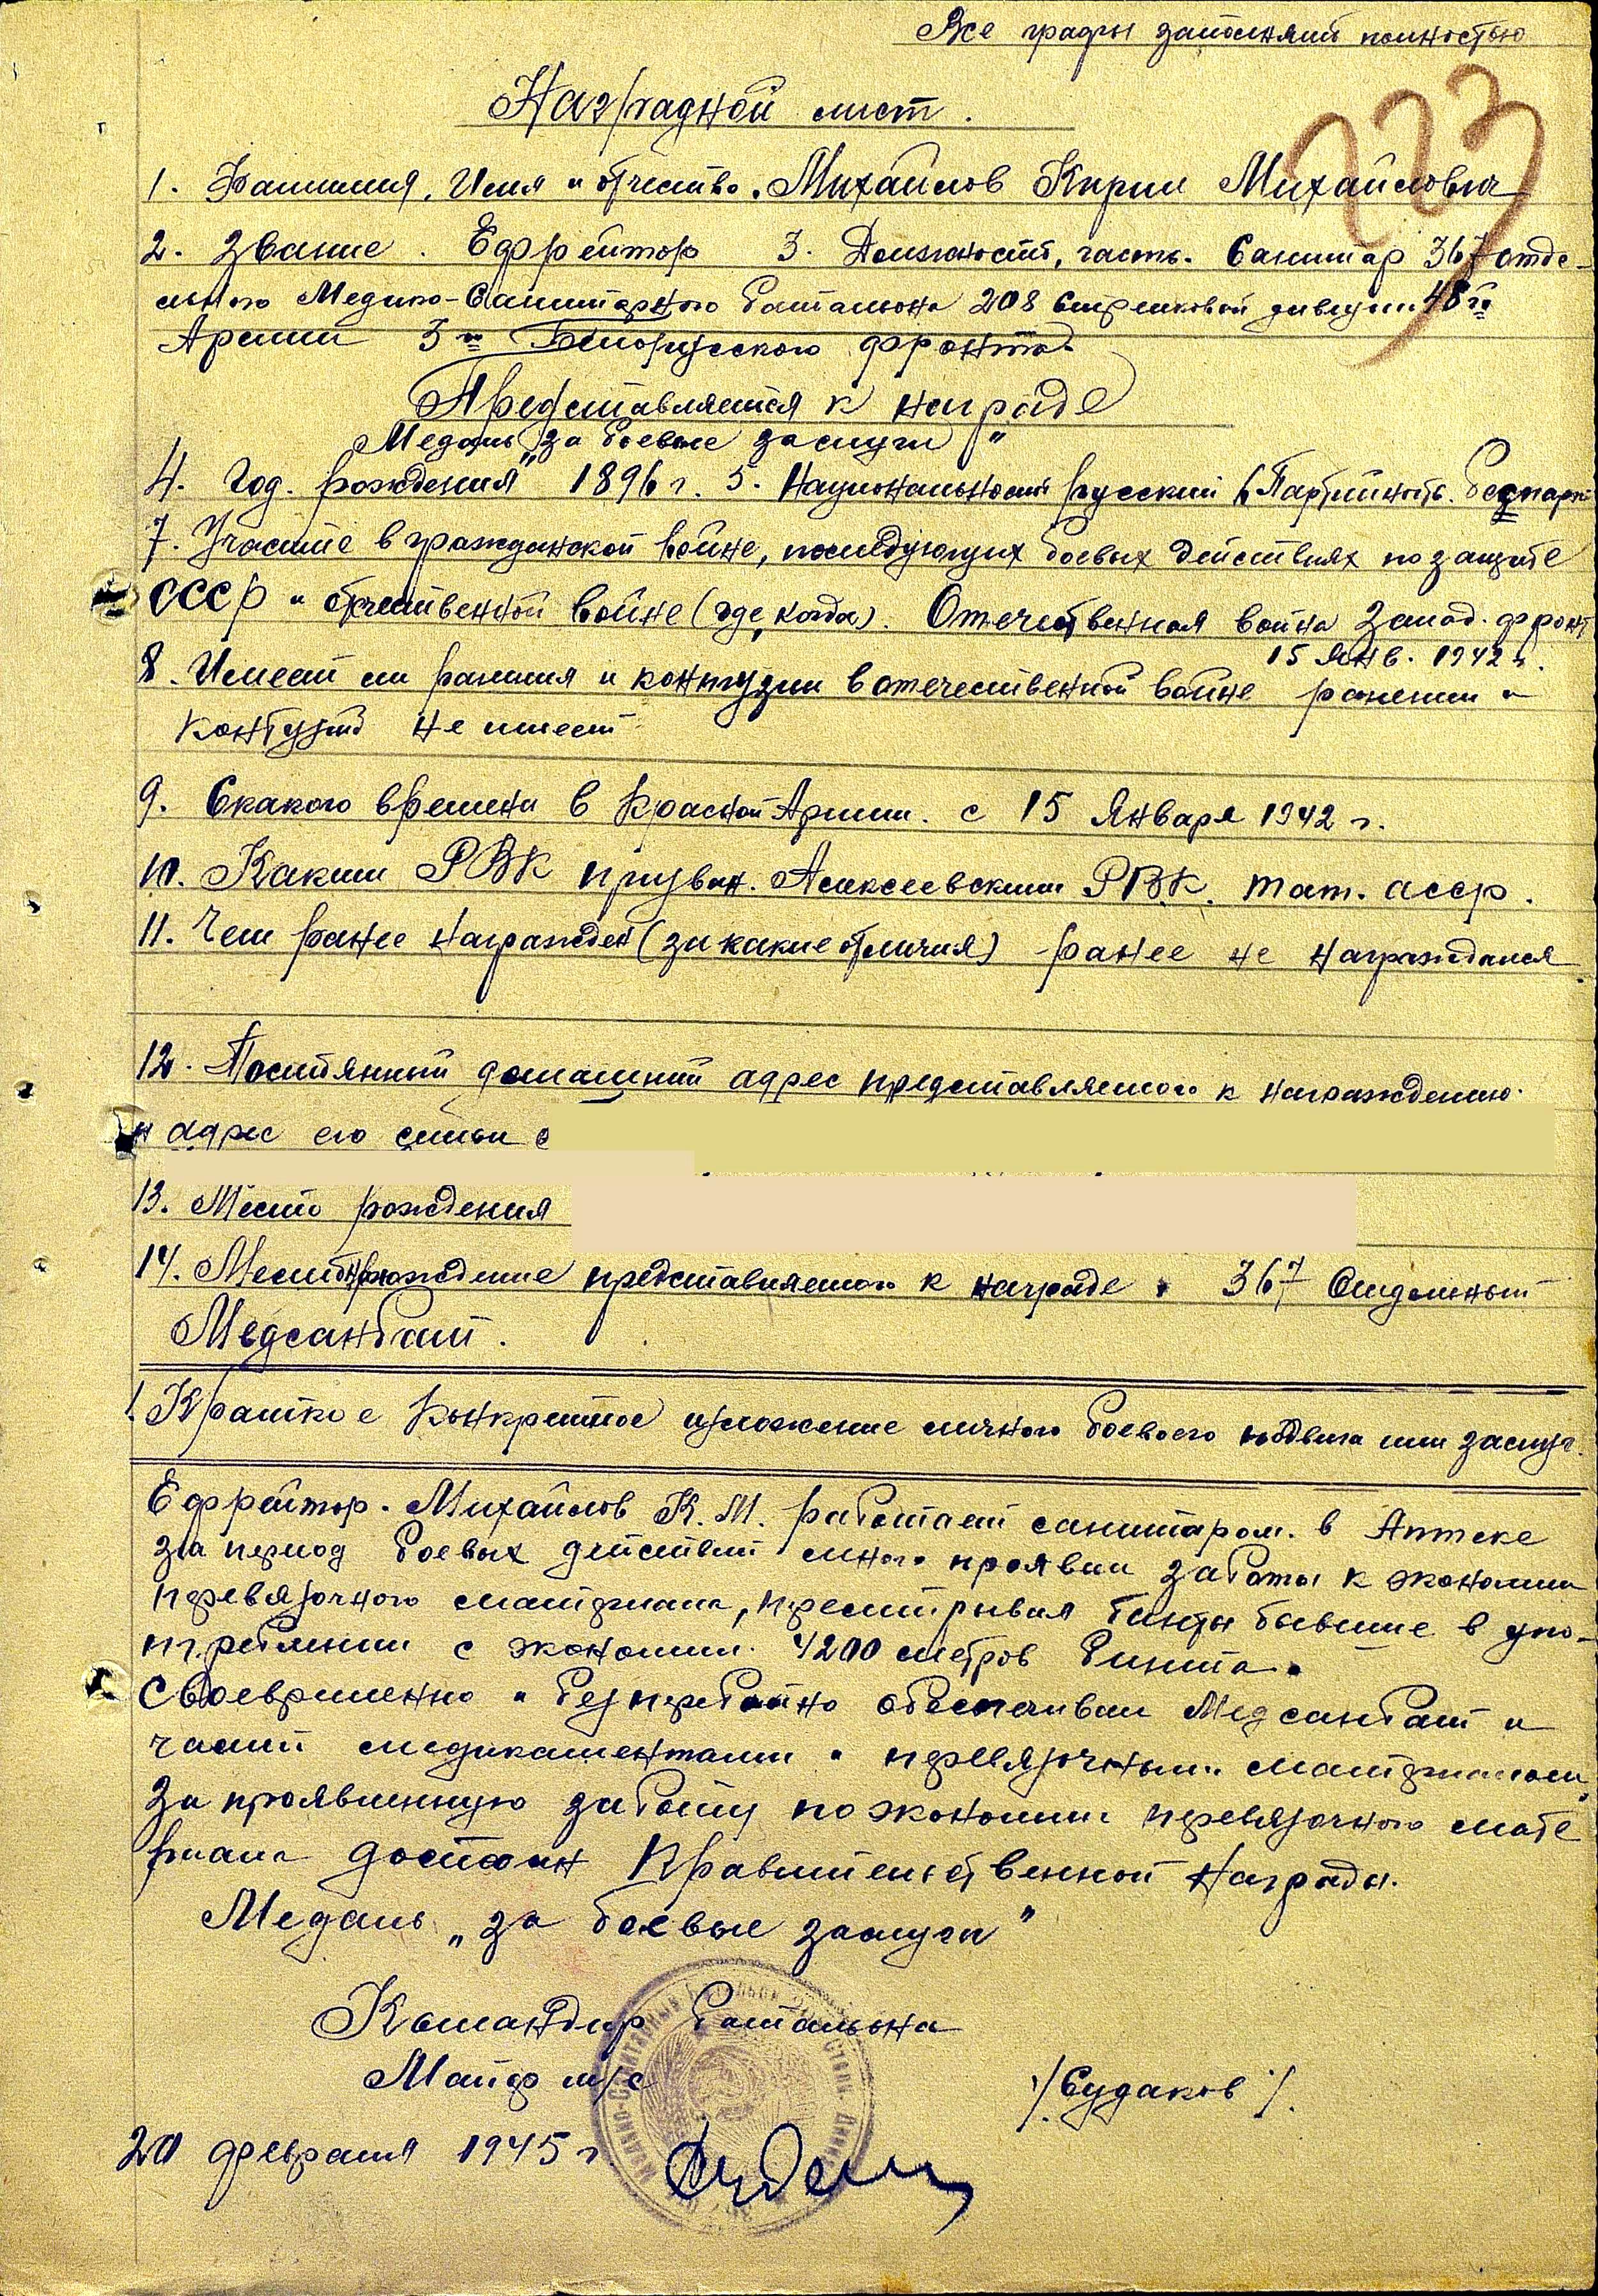 Все графы заполняй полностью
Наградной лист.
223
1. Фамилия, Имя и отчество. Михайлов Кирил Михайлович
2. Звание. Ефрейтор 3. Должность, часть. Санитар 367 отде-
льного Медико-Санитарного баталиона 208 Стрелковой дивизии 48й
Армии 3го Белорусского фронта.
Представляется к награде
Медаль „За боевые заслуги"
4. Год. рождения 1896 г. 5. Национальность русский 6. Партийность. беспарт
7. Участие в гражданской войне, последующих боевых действиях по защите
СССР и отчественной войне (где, когда). Отечественная война Запад. фронт
15 янв. 1942 г.
8. Имеет ли ранения и контузии в отечественной войне ранении и
контузий не имеет
9. С какого времени в Красной Армии. с 15 Января 1942 г.
10. Каким РВК призван. Алексеевским РВК. тат. асср.
11. Чем ранее награжден (за какие отличия) ранее не награждался
12. Постоянный домашний адрес представляемого к награждению
и адрес его семьи с
13. Место рождения
14. Местонахождение представляемого к награде. 367 Отдельный
Медсанбат.
1. Краткое конкретное изложение личного боевого подвига или заслуг.
Ефрейтор. Михайлов К. М. работает санитаром. в Аптеке
за период боевых действий много проявил заботы к экономии
перевязочного материала, перестирывая бинты бывшие в упо-
треблении с экономии. 4200 метров бинта.
Своевременно и бесперебойно обеспечивал Медсанбат и
части медикаментами и перевязочным материалом
За проявленную заботу по экономии перевязочного мате
риала достоин Правительственной награды.
Медаль „За боевые заслуги"
Командир баталиона
Майор м/с /Судаков/.
20 февраля 1945 г.